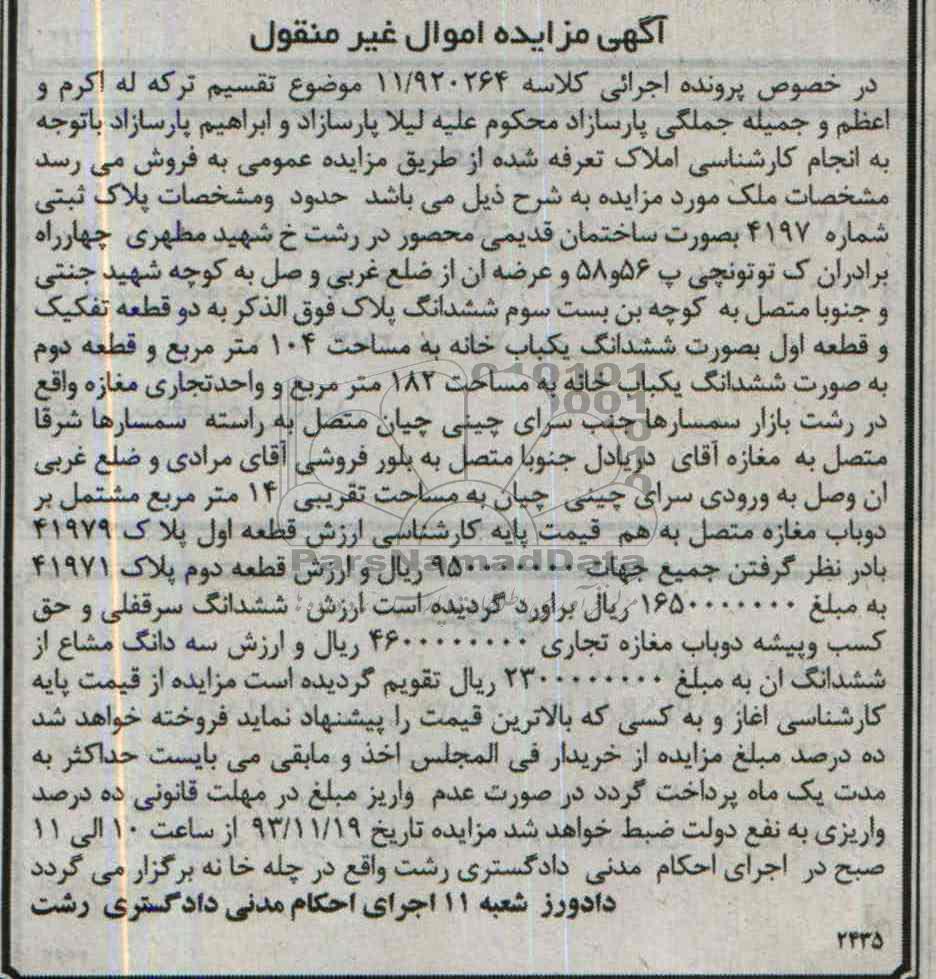 آگهی مزایده اموال غیر منقول
در خصوص پرونده اجرائی کلاسه ۱۱/۹۲۰۲۶۴ موضوع تقسیم ترکه له اکرم و
اعظم و جمیله جملگی پارسازاد محکوم علیه لیلا پارسازاد و ابراهیم پارسازاد باتوجه
به انجام کارشناسی املاک تعرفه شده از طریق مزایده عمومی به فروش می رسد
مشخصات ملک مورد مزایده به شرح ذیل می باشد حدود ومشخصات پلاک ثبتی
شماره ۴۱۹۷ بصورت ساختمان قدیمی محصور در رشت خ شهید مطهری چهارراه
برادران ک توتونچی پ ۵۶و۵۸ و عرضه ان از ضلع غربی و صل به کوچه شهید جنتی
و جنوبا متصل به کوچه بن بست سوم ششدانگ پلاک فوق الذکر به دو قطعه تفکیک
و قطعه اول بصورت ششدانگ یکباب خانه به مساحت ۱۰۴ متر مربع و قطعه دوم
به صورت ششدانگ یکباب خانه به مساحت ۱۸۲ متر مربع و واحدتجاری مغازه واقع
در رشت بازار سمسارها جنب سرای چینی چیان متصل به راسته سمسارها شرقا
متصل به مغازه آقای دریادل جنوبا متصل به بلور فروشی آقای مرادی و ضلع غربی
ان وصل به ورودی سرای چینی چیان به مساحت تقریبی ۱۴ متر مربع مشتمل بر
دوباب مغازه متصل به هم قیمت پایه کارشناسی ارزش قطعه اول پلا ک ۴۱۹۷۹
بادر نظر گرفتن جمیع جهات ریال و ارزش قطعه دوم پلاک ۴۱۹۷۱
به مبلغ ۱۶۵۰۰۰۰۰۰۰۰ ریال براورد گردیده است ارزش ششدانگ سرقفلی و حق
کسب وپیشه دوباب مغازه تجاری ۴۶۰۰۰۰۰۰۰۰۰ ریال و ارزش سه دانگ مشاع از
ششدانگ ان به مبلغ ۲۳۰۰۰۰۰۰۰۰۰ ریال تقویم گردیده است مزایده از قیمت پایه
کارشناسی اغاز و به کسی که بالاترین قیمت را پیشنهاد نماید فروخته خواهد شد
ده درصد مبلغ مزایده از خریدار فی المجلس اخذ و مابقی می بایست حداکثر به
مدت یک ماه پرداخت گردد در صورت عدم واریز مبلغ در مهلت قانونی ده درصد
واریزی به نفع دولت ضبط خواهد شد مزایده تاریخ ۹۳/۱۱/۱۹ از ساعت ۱۰ الی ۱۱
صبح در اجرای احکام مدنی دادگستری رشت واقع در چله خا نه برگزار می گردد
دادورز شعبه ۱۱ اجرای احکام مدنی دادگستری رشت
۲۴۳۵
ParsNamadData